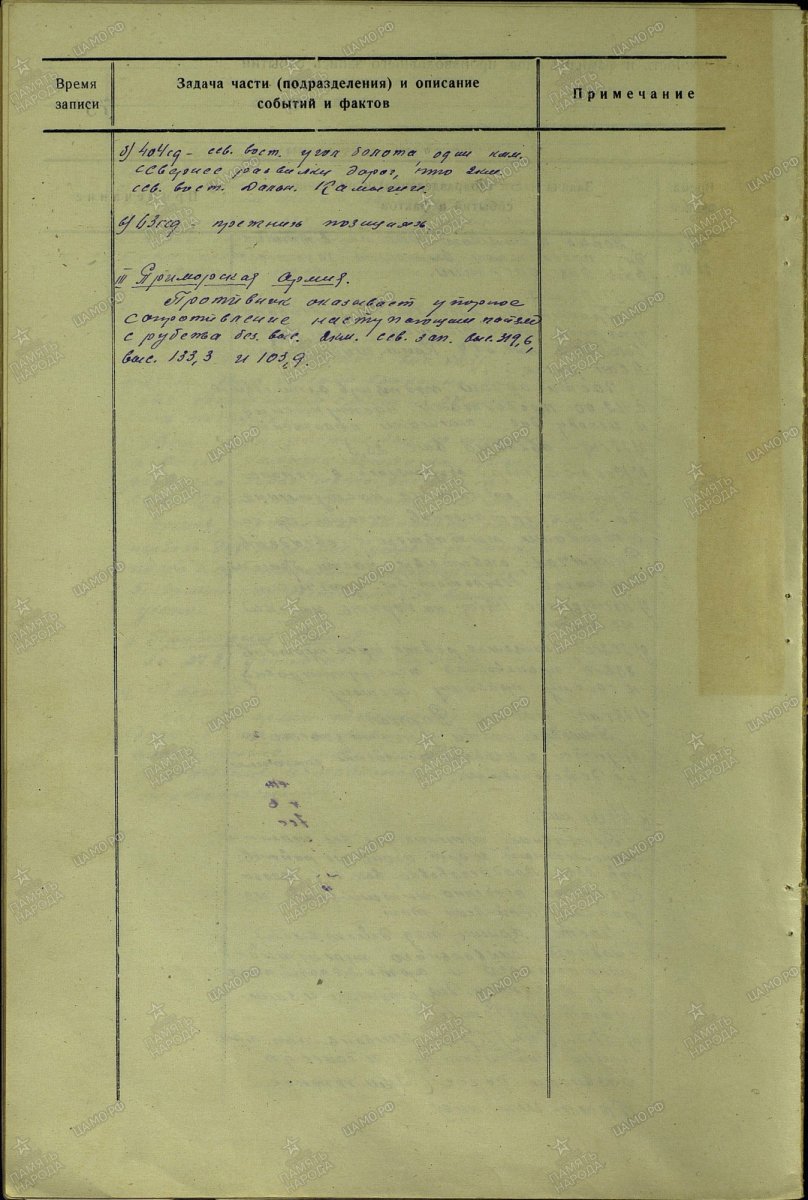 Время записи
Задача части (подразделения) и описание событий и фактов
Примечание
б) 404 сд - сев. вост. угол болота, один клм.
севернее развилки дорог, что 2 км.
сев. вост. Дален. Камыши.
в) 63 сд - прежних позициях.
III Приморская Армия.
Противник оказывает упорное
сопротивление наступающим
с рубежа без. выс. 2 км. сев. зап. выс. 319,6,
выс. 133,3 и 103,9.